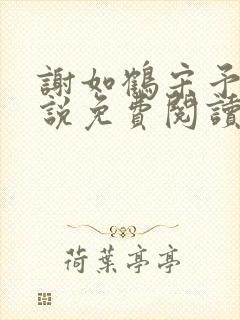 謝如鶴宋予
說免費閱讀
荷葉亭亭